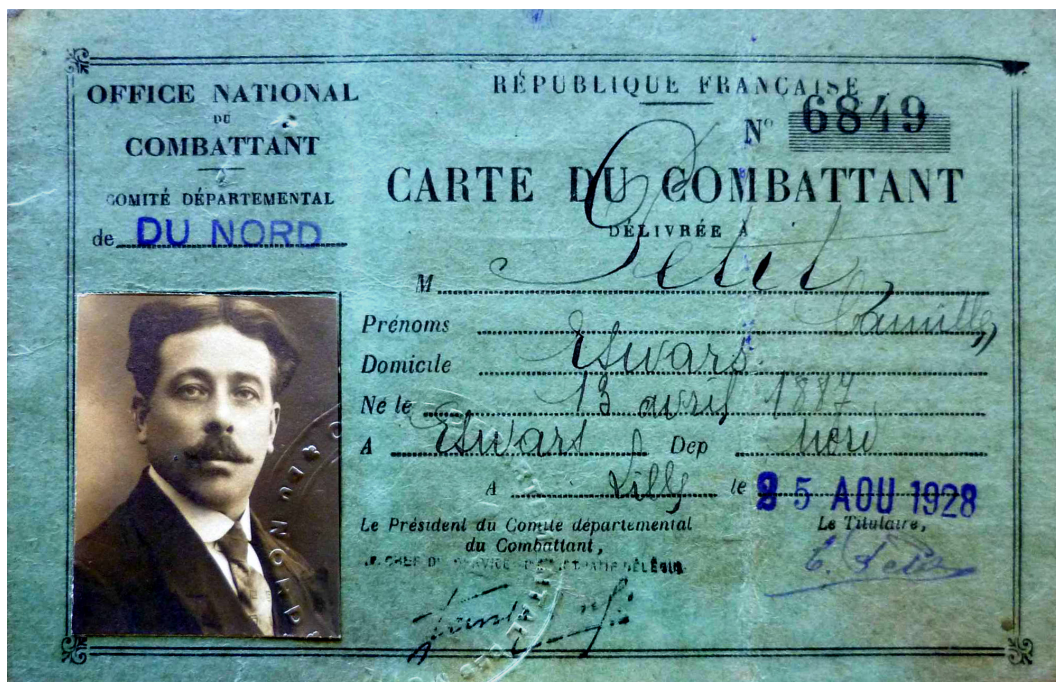 OFFICE NATIONAL
DU
COMBATTANT
COMITÉ DÉPARTEMENTAL
de DU NORD
RÉPUBLIQUE FRANÇAISE
N° 6849
CARTE DU COMBATTANT
DÉLIVRÉE A
M Petit
Prénoms Camille
Domicile Eswars
Né le 13 avril 1887
A Eswars Dep Nord
A Lille le 25 AOU 1928
Le Président du Comité départemental
du Combattant,
LE CHEF DU SERVICE DÉLÉGUÉ
Le Titulaire,
C. Petit